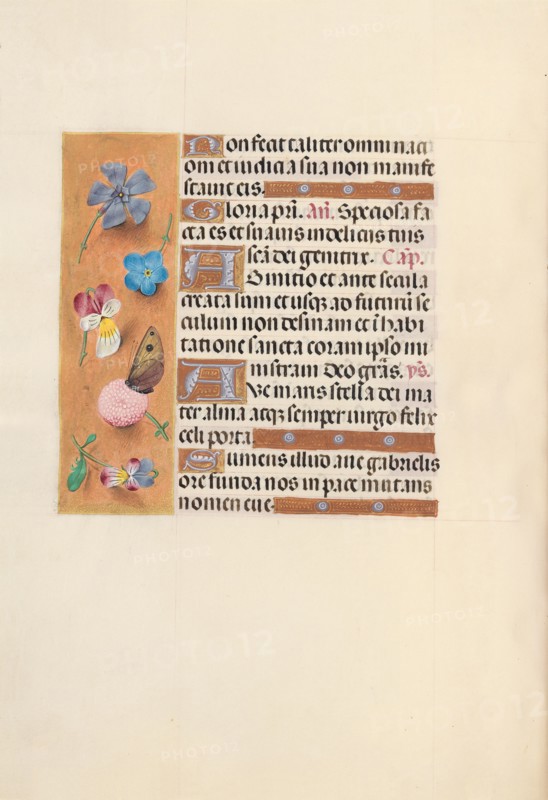 Non fecit taliter omni naci
oni et iudicia sua non manife
stauit eis.
Gloria pri. Añ. Speciosa fa
cta es et suauis in delicijs tuis
scã dei genitrix. Cap̃.
AB initio et ante secula
creata sum et usq; ad futurũ se
culum non desinam et ĩ habi
tatione sancta coram ipso mi
nistraui Deo grãs. ps̃.
AVe maris stella dei ma
ter alma atq; semper uirgo felix
celi porta.
Sumens illud aue gabrielis
ore funda nos in pace mutans
nomen eue.
PHOTO12